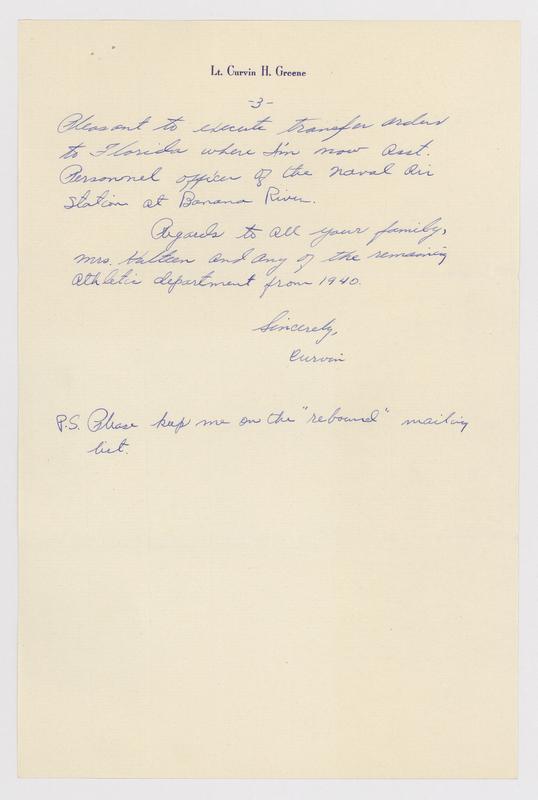 Lt. Curvin H. Greene
-3-
Pleasant to execute transfer orders
to Florida where I'm now Asst.
Personnel officer of the Naval Air
Station at Banana River.
Regards to all your family,
Mrs. and any of the remaining
athletic department from 1940.
Sincerely,
Curvin
P.S. Please keep me on the "rebound" mailing
list.